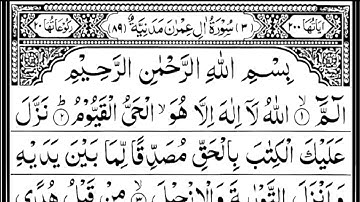 اٰيَاتُهَا ٢٠٠ (٣) سُوْرَةُ اٰلِ عِمْرٰنَ مَدَنِيَّةٌ (٨٩) رُكُوْعَاتُهَا ٢٠
بِسْمِ اللّٰهِ الرَّحْمٰنِ الرَّحِيْمِ
الٓمَّٓ ۙ﴿١﴾ اللّٰهُ لَاۤ اِلٰهَ اِلَّا هُوَ ۙ الْحَىُّ الْقَيُّوْمُ ؕ﴿٢﴾ نَزَّلَ
عَلَيْكَ الْكِتٰبَ بِالْحَقِّ مُصَدِّقًا لِّمَا بَيْنَ يَدَيْهِ
وَاَنْزَلَ التَّوْرٰىةَ وَالْاِنْجِيْلَ ۙ﴿٣﴾ مِنْ قَبْلُ هُدًى